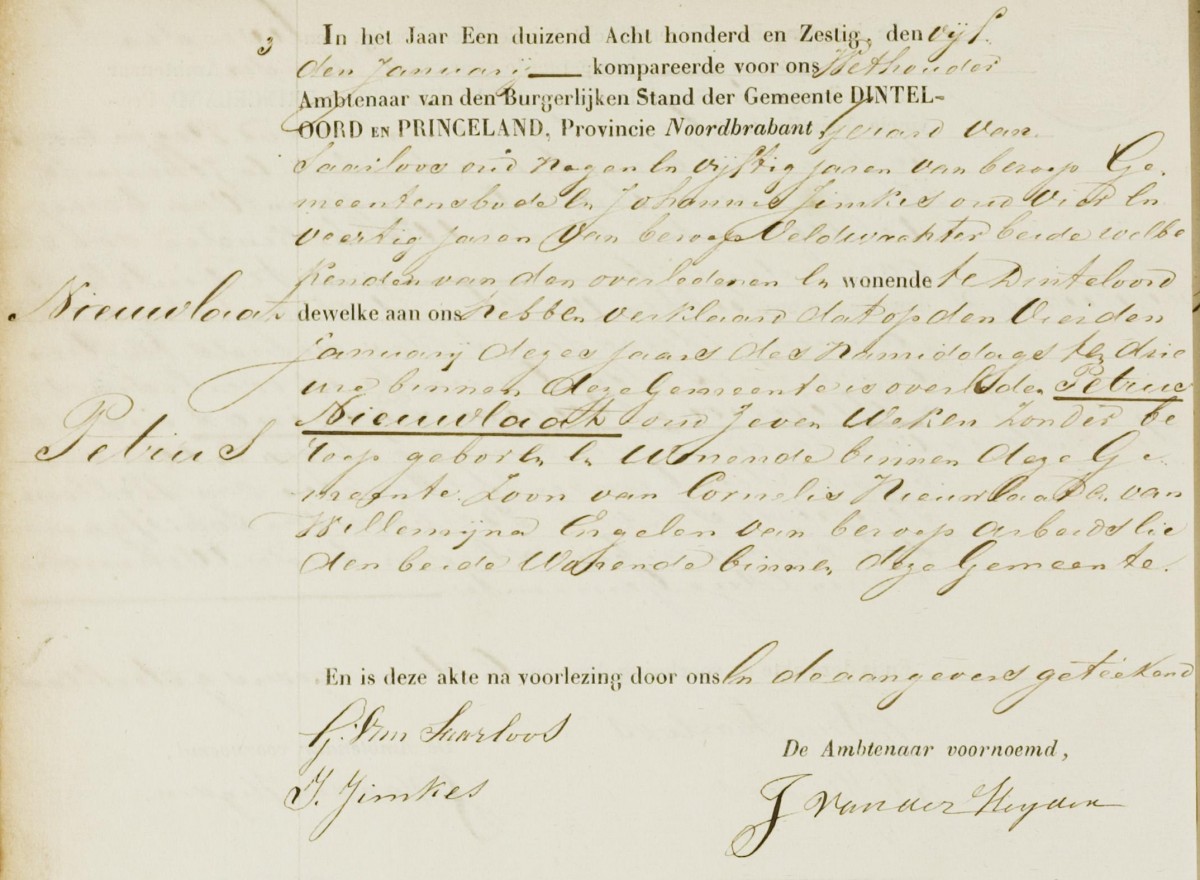 3
In het Jaar Een duizend Acht honderd en Zestig, den vijf
den Januarij kompareerde voor ons Wethouder
Ambtenaar van den Burgerlijken Stand der Gemeente DINTEL-
OORD EN PRINCELAND, Provincie Noordbrabant, Gerard van
Saarloos oud negen en vijftig jaren van beroep Ge-
meentensbode en Johannis Jimkes oud vier en
veertig jaren van beroep Veldwachter beide welbe
kenden van den overledenen en wonende te Dinteloord
Nieuwlaat
dewelke aan ons hebben verklaard dat op den Vierden
Januarij dezes jaars des Namiddags ten drie
ure binnen deze Gemeente is overleden Petrus
Nieuwlaat oud Zeven Weken zonder be
Petrus
roep geboren en Wonende binnen deze Ge-
meente. Zoon van Cornelis Nieuwlaat en van
Willemijna Engelen van beroep arbeidslie
den beide Wonende binnen deze Gemeente.
En is deze akte na voorlezing door ons en de aangevers geteekend
G. Van Saarloos
De Ambtenaar voornoemd,
J. Jimkes
J van der Heyden